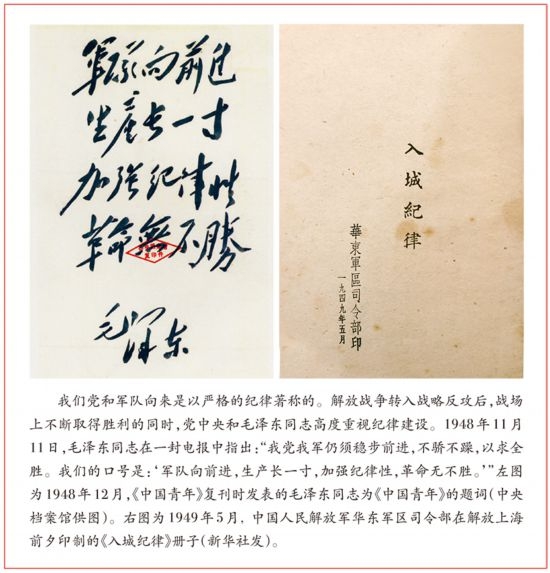 軍队向前进
生產长一寸
加强纪律性
革命無不勝
毛泽东
复印件
入城紀律
華東軍區司令部印
一九四九年五月
我们党和军队向来是以严格的纪律著称的。解放战争转入战略反攻后，战场
上不断取得胜利的同时，党中央和毛泽东同志高度重视纪律建设。1948年11月
11日，毛泽东同志在一封电报中指出：“我党我军仍须稳步前进，不骄不躁，以求全
胜。我们的口号是：‘军队向前进，生产长一寸，加强纪律性，革命无不胜。’”左图
为1948年12月，《中国青年》复刊时发表的毛泽东同志为《中国青年》的题词（中央
档案馆供图）。右图为1949年5月，中国人民解放军华东军区司令部在解放上海
前夕印制的《入城纪律》册子（新华社发）。